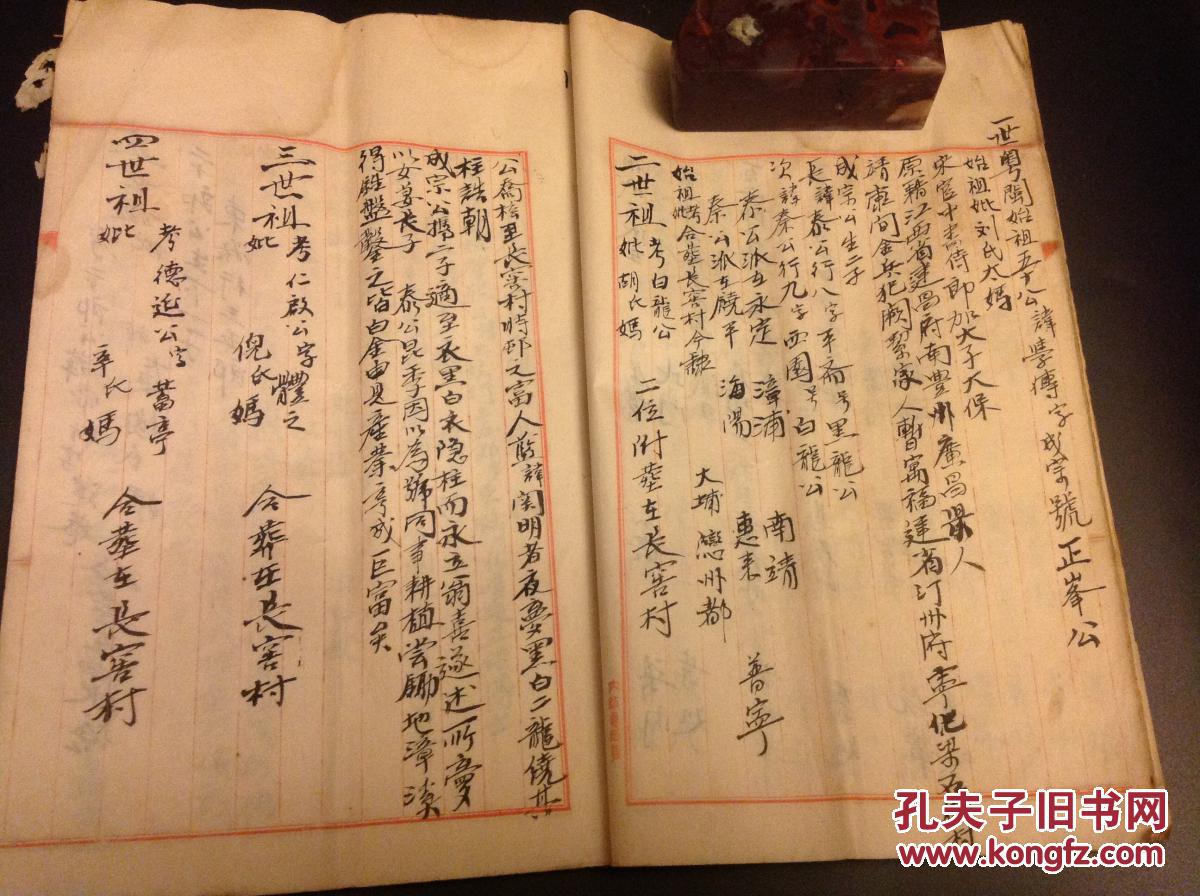 一世粵閩始祖五十八公諱學傅字成宗號正峯公
始祖妣刘氏大媽
宋官中書侍郎加太子太保
原籍江西省建昌府南豐州廣昌县人
靖康间金兵犯阙挈家人暫寓福建省汀州府寧化
成宗公生二子
長諱泰公行八字平斋号黑龍公
次諱秦公行九字西園号白龍公
泰公派在永定 漳浦 南靖
秦公派在饒平 海陽 惠来 普寧
始祖考妣合葬長窖村今隸 大埔 戀州都
二世祖 考白龍公 妣胡氏媽 二位附葬在長窖村
公喬梓至長窖村時邨之富人藍諱関明者夜夢黑白二龍僥其
柱詰朝
成宗公携二子適至衣黑白衣隐柱而永立翁喜遂述所夢
以女妻長子 泰公昆季因以為號同事耕植尝锄地
得胜盤鑿之皆白金由是產業亨成巨富矣
三世祖 考仁啟公字體之 妣 倪氏媽 合葬在長窖村
四世祖 考德迩公字蓄亭 妣 辛氏媽 合葬在長窖村
孔夫子旧书网
www.kongfz.com